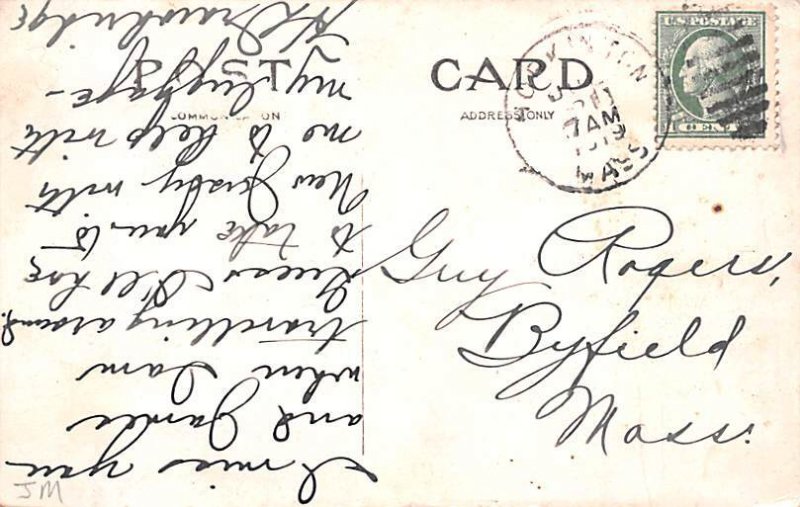 POST CARD
COMMUNICATION
ADDRESS ONLY
U.S. POSTAGE
1 CENT 1
HOPKINTON
7 AM
1919
MASS
Guy Rogers,
Byfield
Mass.
I miss you
and James
when I am
travelling around.
Guess I'll have
to take you to
New Jersey with
me to help with
my luggage -
JM